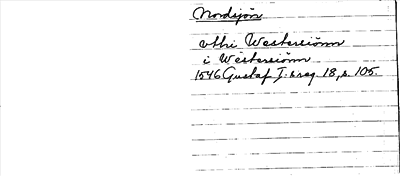 Nordsjön
vthi Westersiönn
i Westersiönn
1546 Gustaf I:s reg. 18, s. 105.